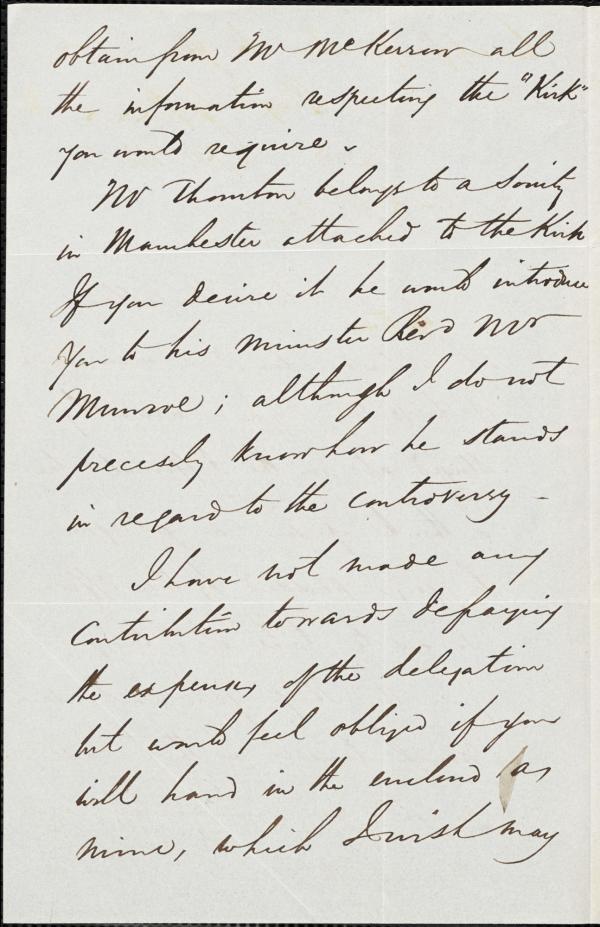 obtain from Mr McKerrow all
the information respecting the "Kirk"
you would require.
Mr Thornton belongs to a Society
in Manchester attached to the Kirk
If you desire it he would introduce
you to his minister Revd Mr
Munroe; although I do not
precesely know how he stands
in regard to the controversy –
I have not made any
contribution towards defraying
the expenses of the delegation
but would feel obliged if you
will hand in the enclosed as
mine, which I wish may